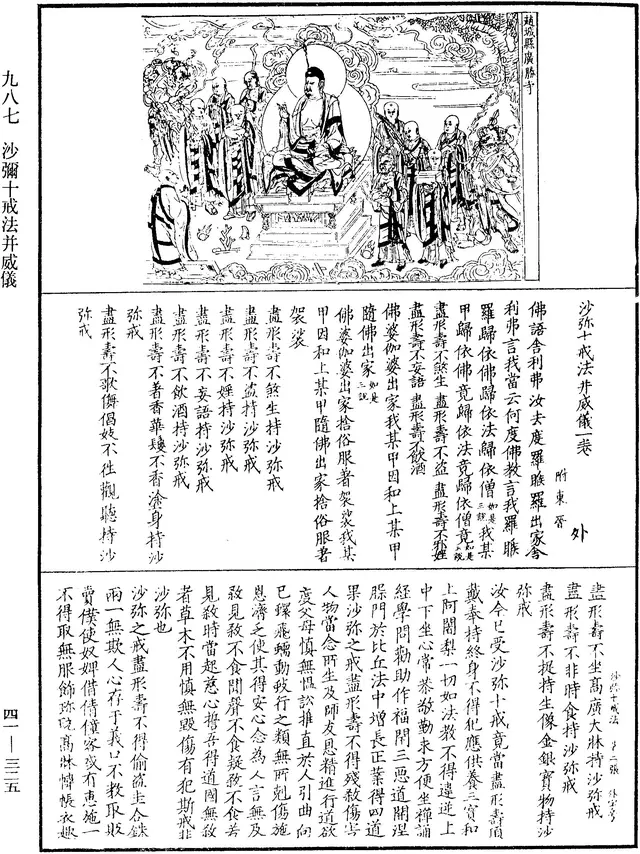 九八七　沙彌十戒法并威儀
四一—三二五
趙城縣廣勝寺
沙弥十戒法并威儀一卷
附東晉
外
佛語舍利弗汝去度羅睺羅出家舍
利弗言我當云何度佛教言我羅睺
羅歸依佛歸依法歸依僧如是三說我某
甲歸依佛竟歸依法竟歸依僧竟如是三說
盡形壽不煞生　盡形壽不盜　盡形壽不邪婬
盡形壽不妄語　盡形壽不飲酒
佛婆伽婆出家我某甲因和上某甲
隨佛出家如是三說
佛婆伽婆出家捨俗服著袈裟我某
甲因和上某甲隨佛出家捨俗服著
袈裟
盡形壽不煞生持沙弥戒
盡形壽不盜持沙弥戒
盡形壽不婬持沙弥戒
盡形壽不妄語持沙弥戒
盡形壽不飲酒持沙弥戒
盡形壽不著香華鬘不香塗身持沙
弥戒
盡形壽不歌儛倡妓不往觀聽持沙
弥戒
盡形壽不坐高廣大牀持沙弥戒
盡形壽不非時食持沙弥戒
盡形壽不捉持生像金銀寶物持沙
弥戒
沙弥十戒法　第二張　外字号
汝今已受沙弥十戒竟當盡形壽頂
戴奉持終身不得犯應供養三寶和
上阿闍梨一切如法教不得違逆上
中下坐心常恭敬勤求方便坐禪誦
經學問勸助作福閇三惡道開涅
槃門於比丘法中增長正業得四道
果沙弥之戒盡形壽不得殘殺傷害
人物當念所生及師友恩精進行道欲
度父母慎無愠訟推直於人引曲向
已蠉飛蠕動蚑行之類無所剋傷施
恩濟乏使其得安心念為人言無及
殺見殺不食聞聲不食疑殺不食若
見殺時當起慈心誓吾得道國無殺
者草木不用慎無毀傷有犯斯戒非
沙弥也
沙弥之戒盡形壽不得偷盜圭合銖
兩一無欺人心存于義口不教取販
賣僕使奴婢借倩僮家或有惠施一
不得取無服飾珍玩高牀幃帳衣趣